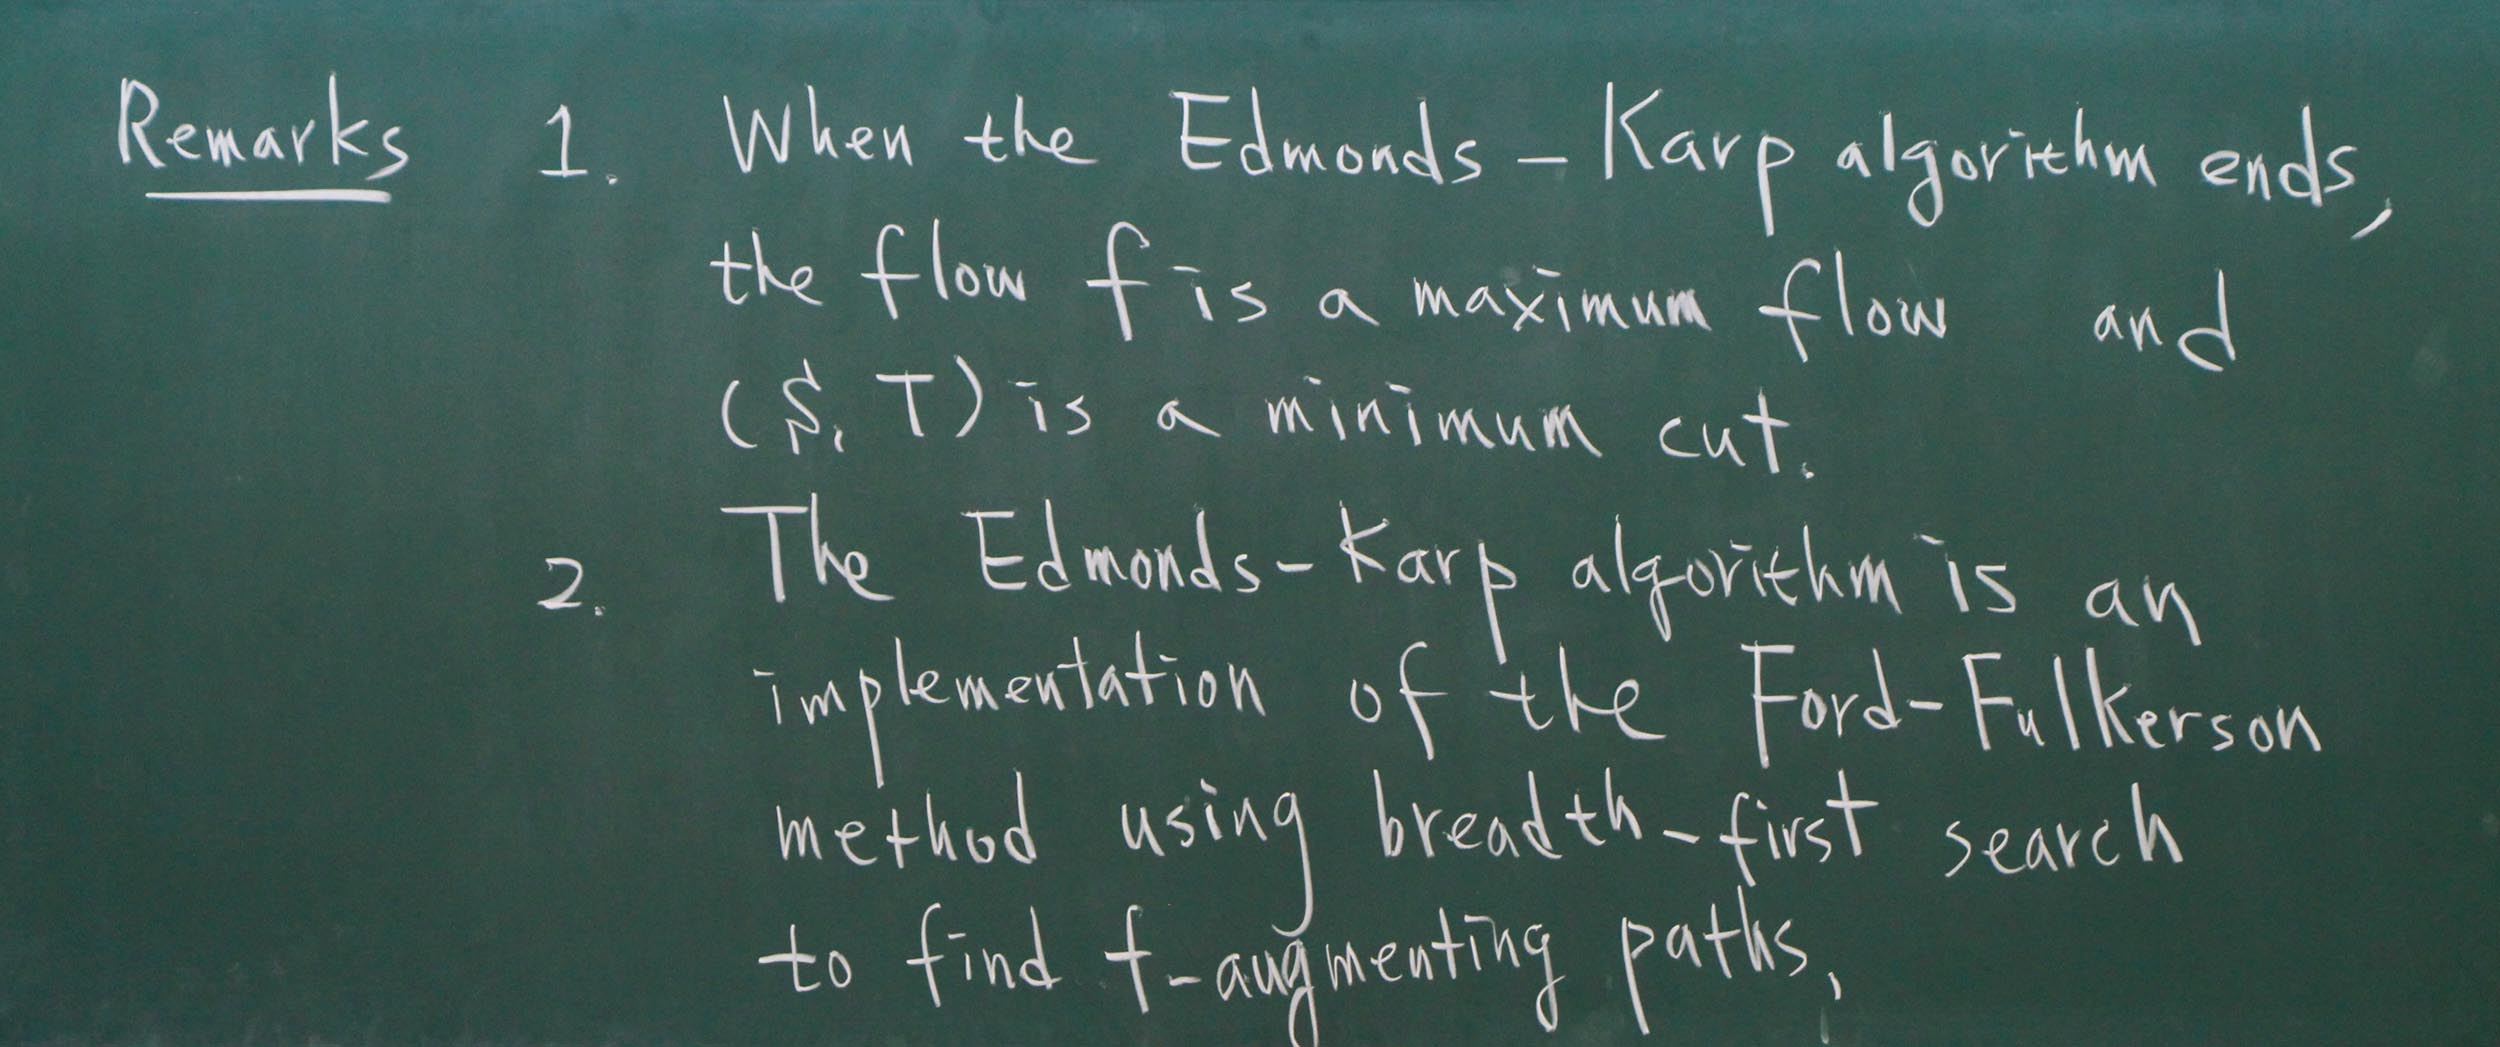 Remarks 1. When the Edmonds-Karp algorithm ends,
the flow f is a maximum flow and
(S, T) is a minimum cut.
2. The Edmonds-Karp algorithm is an
implementation of the Ford-Fulkerson
method using breadth-first search
to find f-augmenting paths,